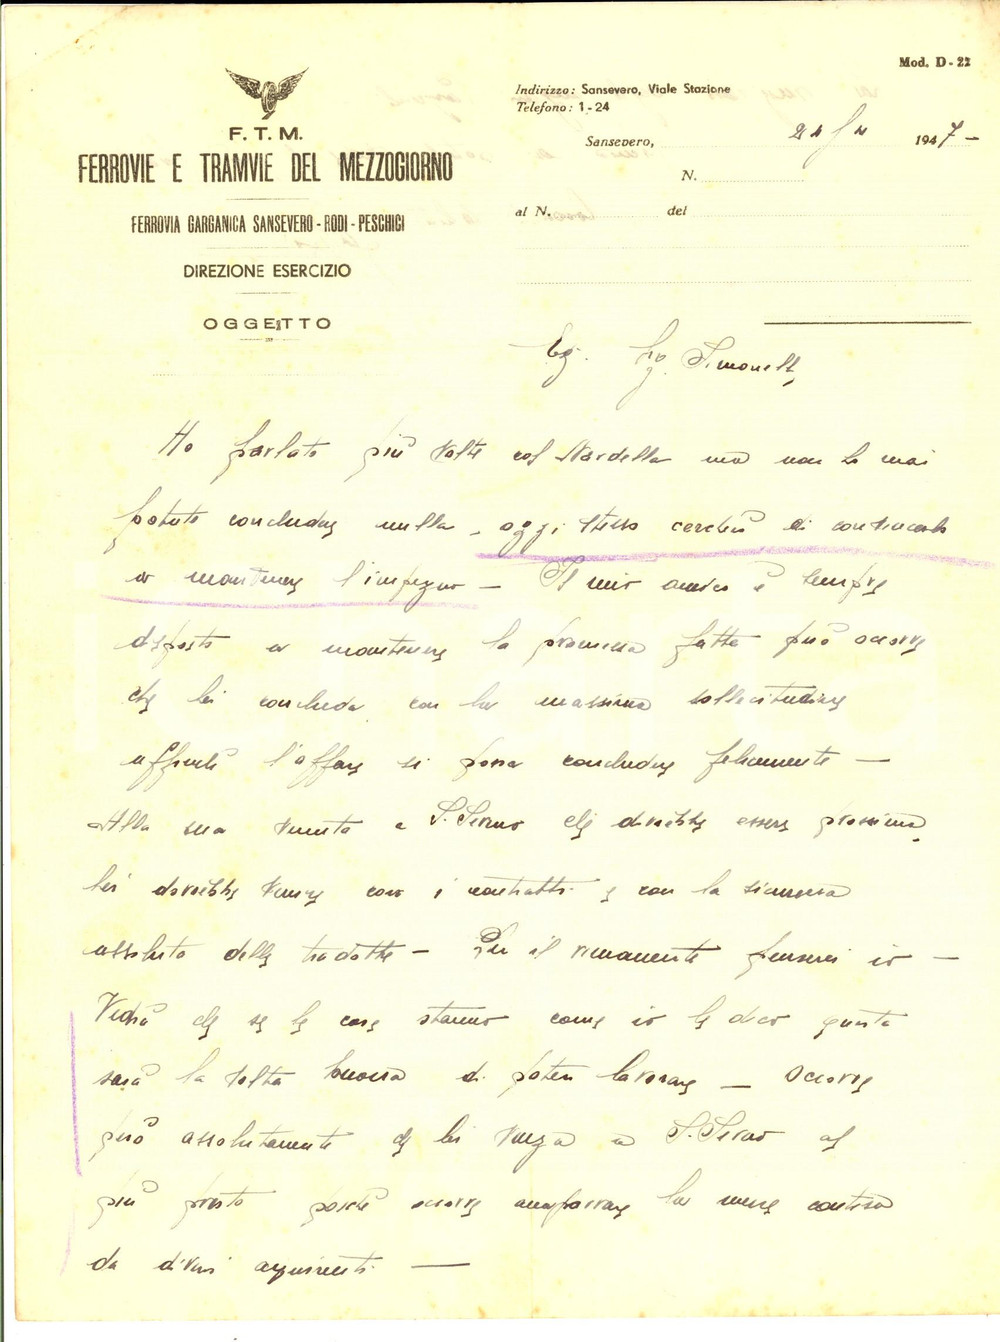 Mod. D-22
F. T. M.
FERROVIE E TRAMVIE DEL MEZZOGIORNO
FERROVIA GARGANICA SANSEVERO - RODI - PESCHICI
DIREZIONE ESERCIZIO
OGGETTO
Indirizzo: Sansevero, Viale Stazione
Telefono: 1-24
Sansevero, 1947 -
N.
al N. del
Eg. Sig. Simonelli,
Ho parlato più volte col Nardella ma non ho mai
potuto concludere nulla - oggi stesso cercherò di convincerlo
a mantenere l'impegno - Il mio amico è sempre
disposto a mantenere la promessa fatta però occorre
che lei concluda con la massima sollecitudine
affinché l'affare si possa concludere felicemente -
Alla sua venuta a S. Severo che dovrebbe essere prossima,
lei dovrebbe venire con i contratti e con la sicurezza
assoluta delle tradotte - Per il rimanente penserei io -
Vedrà che se le cose stanno come io le dico questa
sarà la volta buona di poter lavorare - Occorre
però assolutamente che lei venga a S. Severo al
più presto poiché occorre accaparrare la merce contesa
da diversi acquirenti -